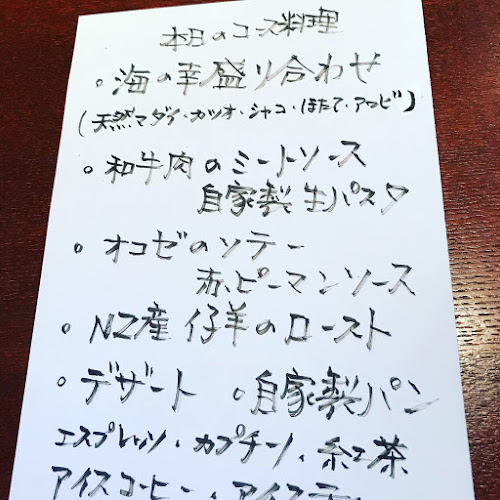 本日のコース料理
○海の幸盛り合わせ
(天然マダイ・カツオ・シャコ・ほたて・アマエビ)
○和牛肉のミートソース
自家製生パスタ
○オコゼのソテー
赤ピーマンソース
○NZ産仔羊のロースト
○デザート ○自家製パン
エスプレッソ・カプチーノ・紅茶
アイスコーヒー・アイスティー